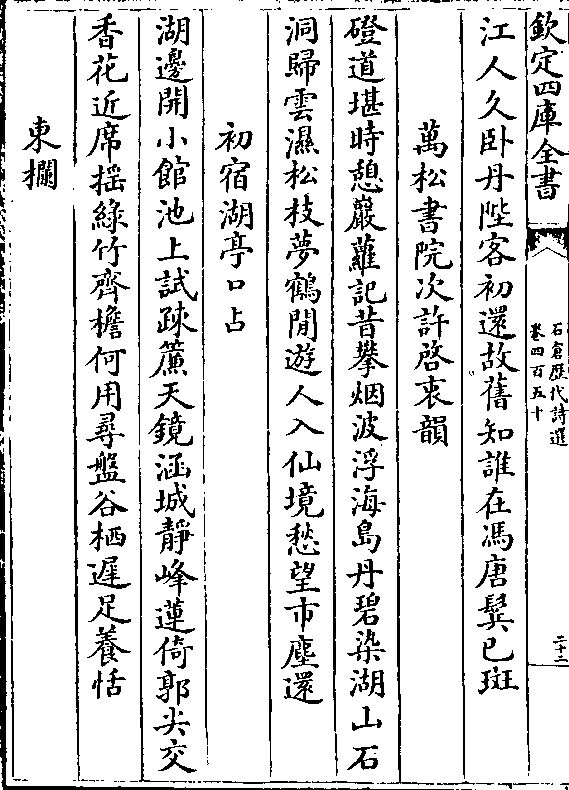 欽定四庫全書
石倉歷代詩選
卷四百五十
二十二
江人久卧丹陛客初還故舊知誰在馮唐鬢已斑
萬松書院次許啓衷韻
磴道堪時憩巖蘿記昔攀烟波浮海島丹碧染湖山石
洞歸雲濕松枝夢鶴閒遊人入仙境愁望市塵還
初宿湖亭口占
湖邊開小館池上試疎簾天鏡涵城靜峰蓮倚郭尖交
香花近席揺綠竹齊檐何用尋盤谷栖遲足養恬
東欄